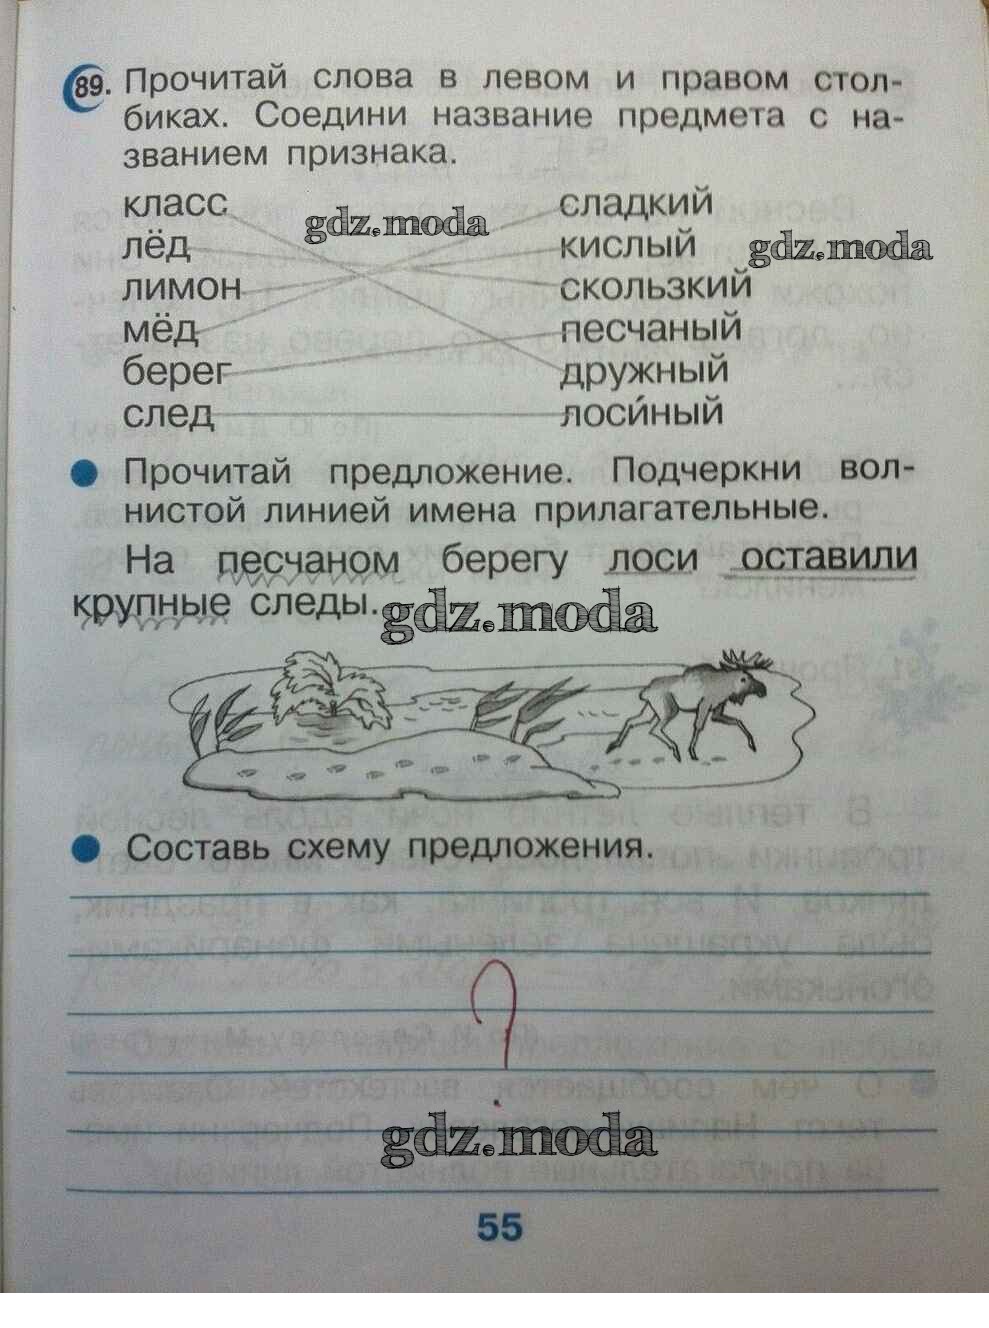 89. Прочитай слова в левом и правом стол-
биках. Соедини название предмета с на-
званием признака.
класс сладкий
gdz.moda
лёд кислый
gdz.moda
лимон скользкий
мёд песчаный
берег дружный
след лоси́ный
Прочитай предложение. Подчеркни вол-
нистой линией имена прилагательные.
На песчаном берегу лоси оставили
крупные следы.
gdz.moda
Составь схему предложения.
?
gdz.moda
55